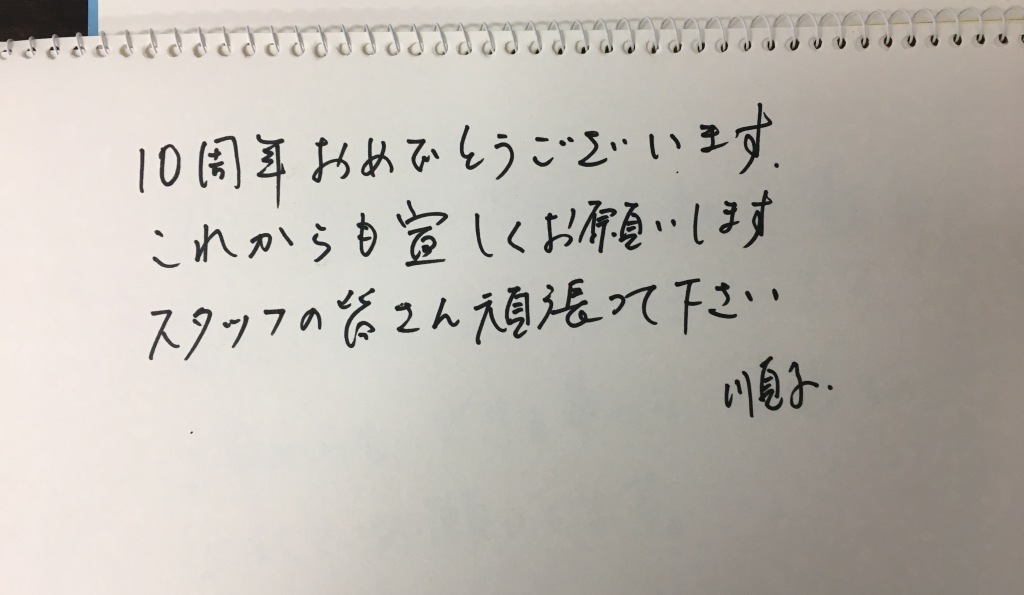 10周年おめでとうございます.
これからも宜しくお願いします
スタッフの皆さん頑張って下さい
順子.